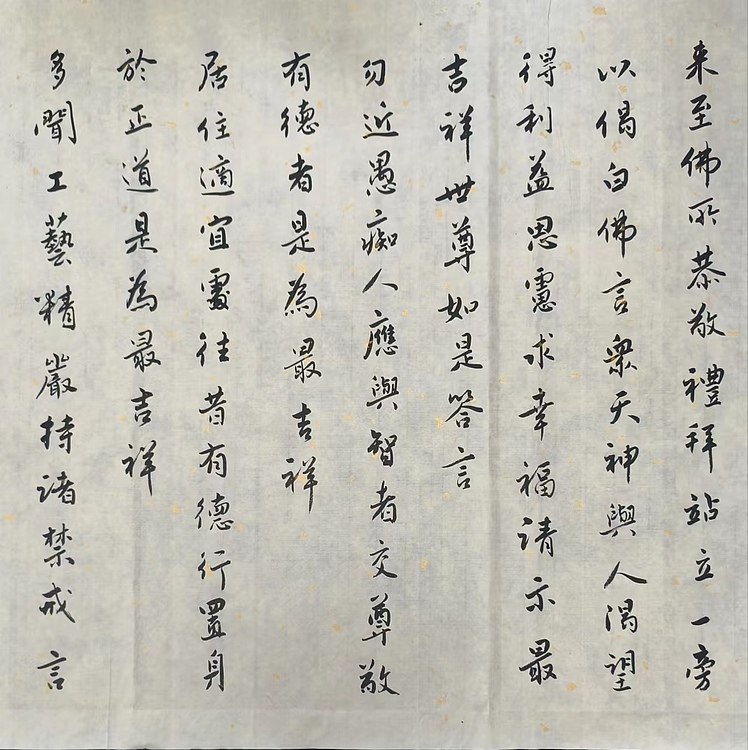 来至佛所恭敬禮拜站立一旁
以偈白佛言衆天神與人渴望
得利益思慮求幸福請示最
吉祥世尊如是答言
勿近愚痴人應與智者交尊敬
有德者是為最吉祥
居住適宜處往昔有德行置身
於正道是為最吉祥
多聞工藝精嚴持諸禁戒言